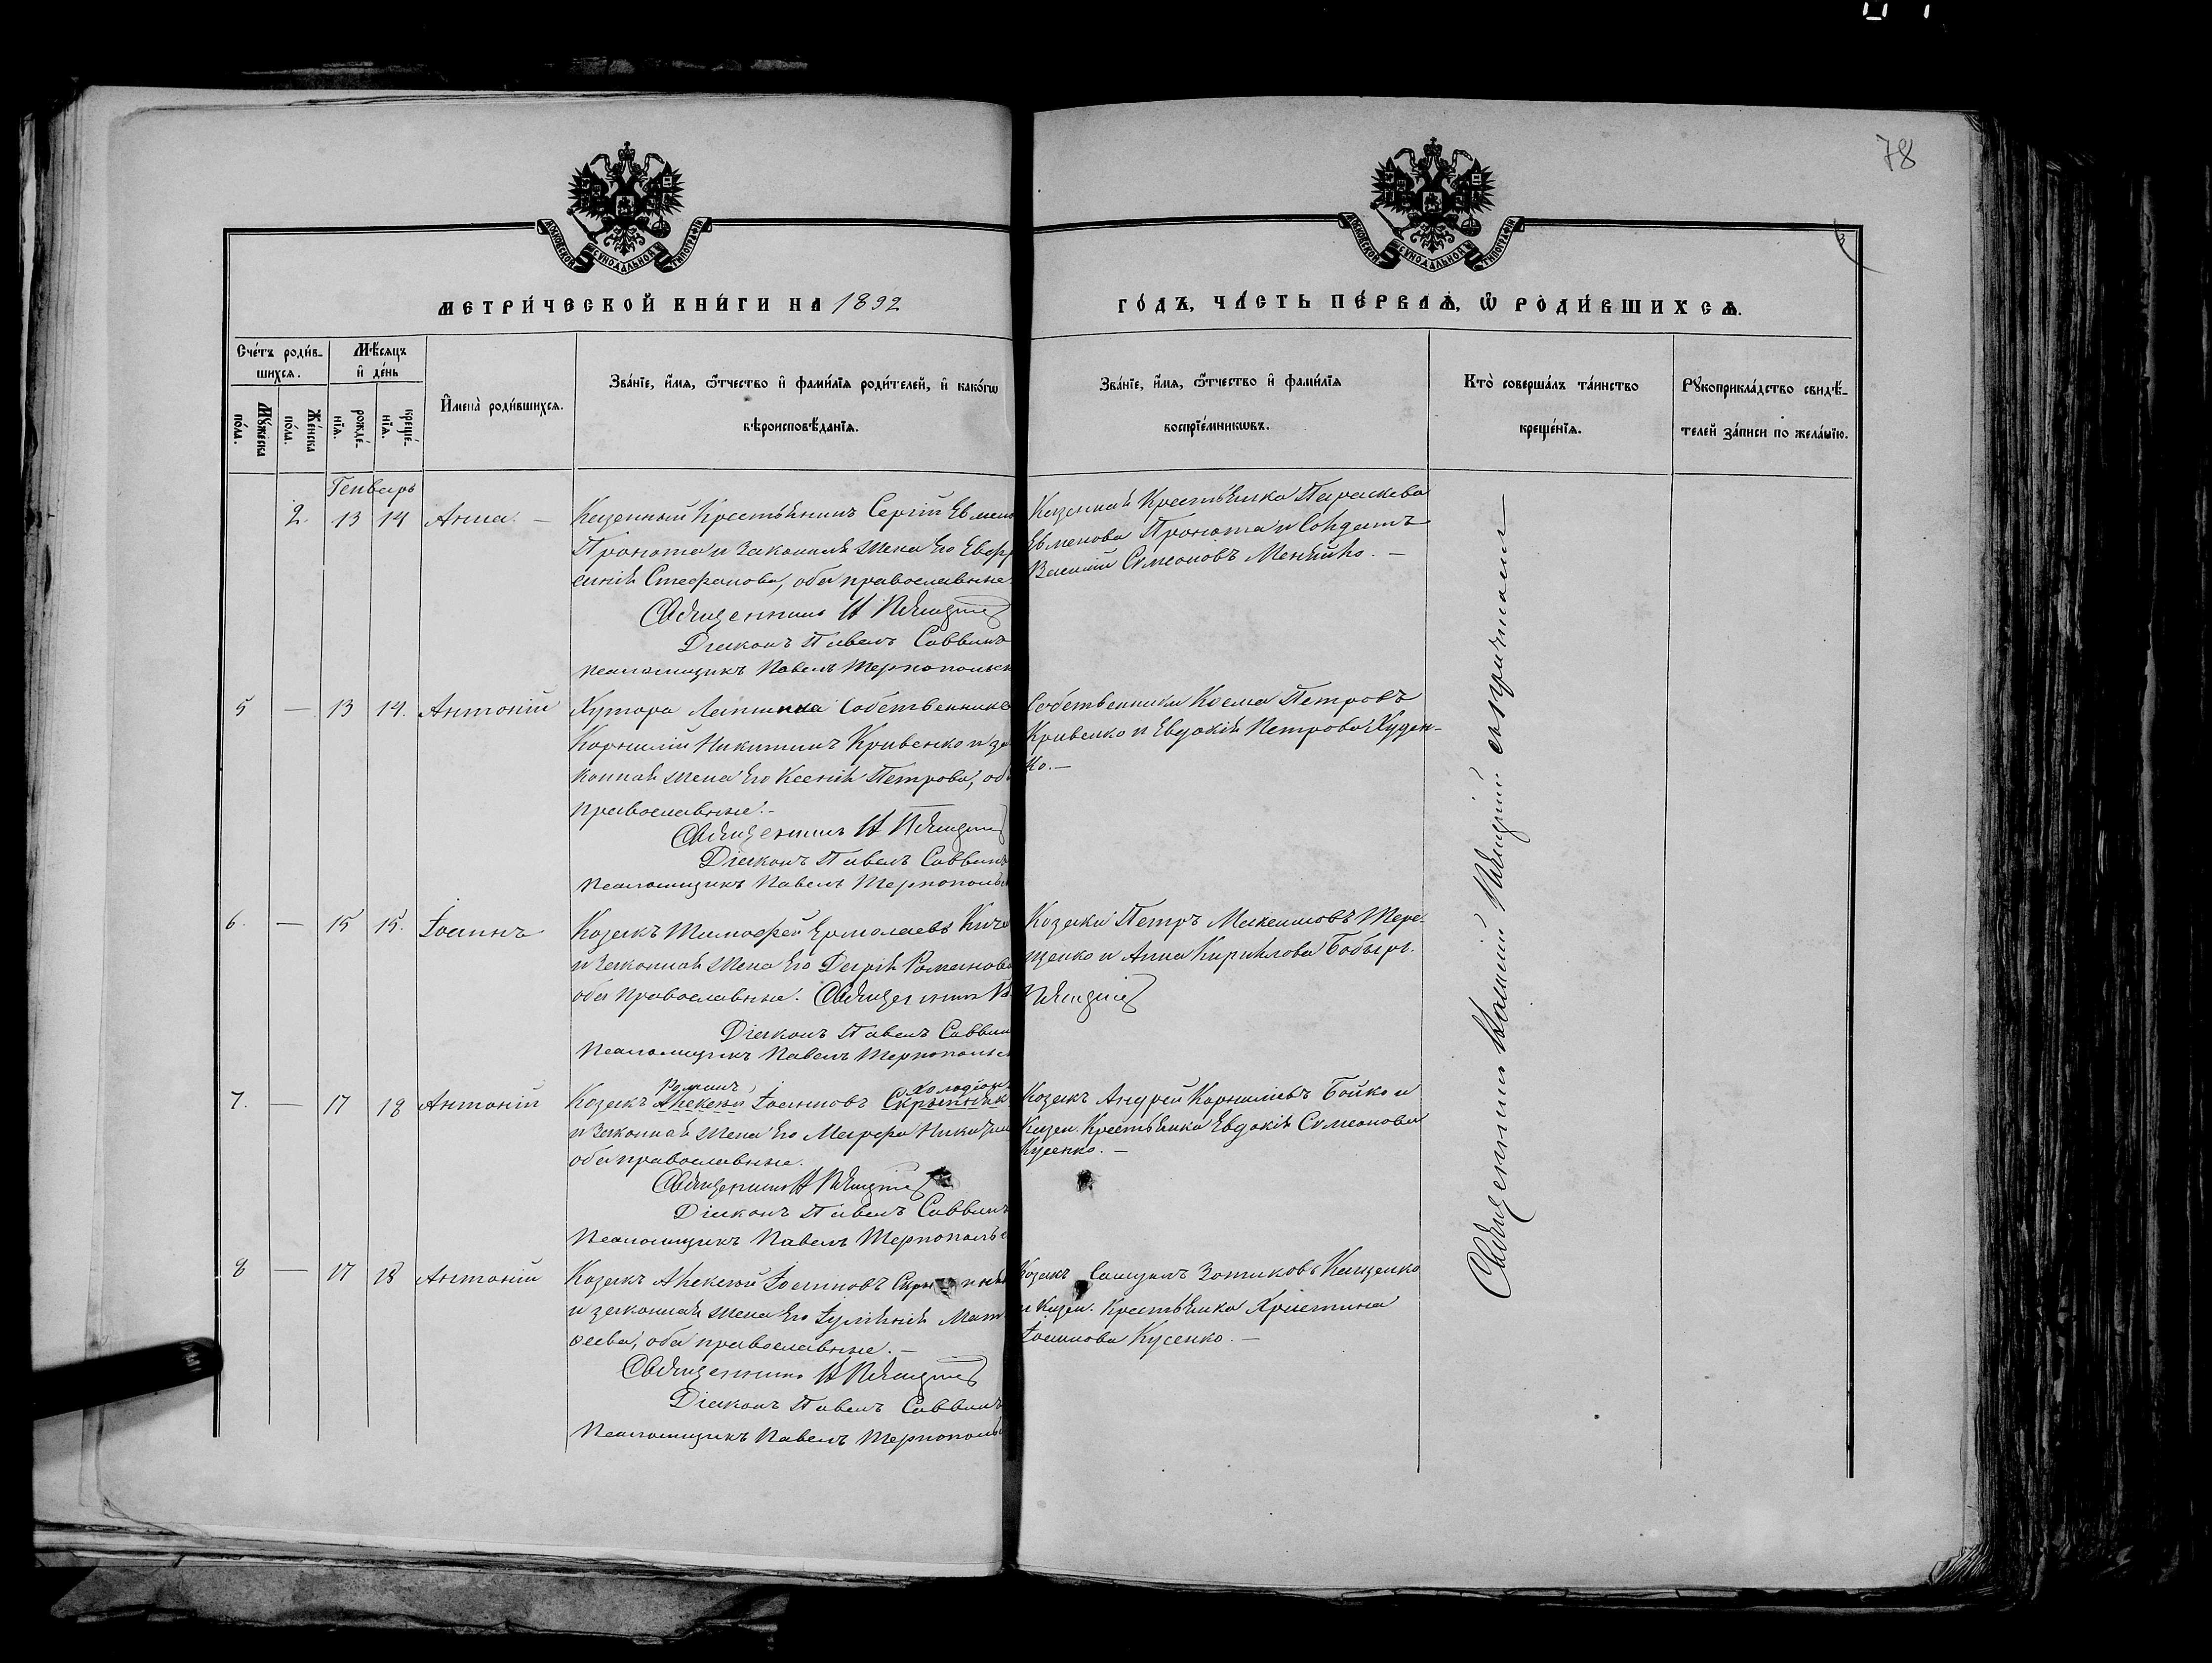 78
МОСКОВСКОЙ СѴНОДАЛЬНОЙ ТИПОГРАФІИ
МОСКОВСКОЙ СѴНОДАЛЬНОЙ ТИПОГРАФІИ
3
МЕТРИ́ЧЕСКОЙ КНИ́ГИ НА 1892
ГО́ДЪ, ЧА́СТЬ ПЕ́РВАѦ, Ѡ РОДИ́ВШИХСѦ.
Сче́тъ роди́в-
шихсѧ.
Мѣ́сѧцъ
и де́нь
Мꙋ́жеска по́ла.
Же́нска по́ла.
рожде́-нїѧ.
креще́-нїѧ.
И҆мена̀ роди́вшихсѧ.
Зва́нїе, и҆́мѧ, ѻ҆́тчество и҆ фами́лїѧ роди́телей, и҆ како́гѡ
вѣроисповѣ́данїѧ.
Зва́нїе, и҆́мѧ, ѻ҆́тчество и҆ фами́лїѧ
воспрїе́мникѡвъ.
Кто̀ соверша́лъ та́инство
креще́нїѧ.
Рꙋкоприкла́дство свидѣ́-
телей за́писи по жела́нїю.
Генварь
2. 13 14 Анна. —
Казенный Крестьянинъ Сергій Евмено
и законная жена его Евфр
синія Стефанова, оба православные.
Священникъ
Діаконъ Павелъ Саввинъ
Псаломщикъ Павелъ Тернопольск
Казенная Крестьянка Параскева
Евменова и Солдатъ
Василій Симеоновъ —
5 — 13 14. Антоній
Хутора Собственникъ
Корнилій Никитинъ Кривенко и за
конная жена его Ксенія Петрова, оба
православные. —
Священникъ
Діаконъ Павелъ Саввинъ
Псаломщикъ Павелъ Тернопольс
Собственники Косма Петровъ
Кривенко и Евдокія Петрова Худен-
ко. —
6. — 15 15. Іоаннъ
Козакъ Тимофей Ермолаевъ
и законная жена его Дарія Романова
оба православные. Священникъ
Діаконъ Павелъ Саввин
Псаломщикъ Павелъ Тернопольс
Козаки Петръ Максимовъ Тере-
щенко и Анна Кирилова Бобырь.
7. — 17 18 Антоній
Романъ Холодіон
Козакъ Алексій Іоанновъ Скрыпник
и законная жена его Марфа
оба православные.
Священникъ
Діаконъ Павелъ Саввинъ
Псаломщикъ Павелъ Тернопольс
Козакъ Андрей Корниліевъ Бойко и
Казен. Крестьянка Евдокія Симеонова
Кусенко. —
8 — 17 18 Антоній
Козакъ Алексій Іоанновъ
и законная жена его Іуліанія Мат
ѳеева, оба православные. —
Священникъ
Діаконъ Павелъ Саввинъ
Псаломщикъ Павелъ Тернополь
Козакъ Самуилъ Зотиковъ Кищенко
и Казен. Крестьянка Христина
Іоаннова Кусенко. —
Священникъ